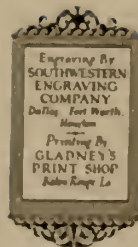 Engraving By
SOUTHWESTERN
ENGRAVING
COMPANY
Dallas, Fort Worth,
Houston
Printing By
GLADNEY'S
PRINT SHOP
Baton Rouge La